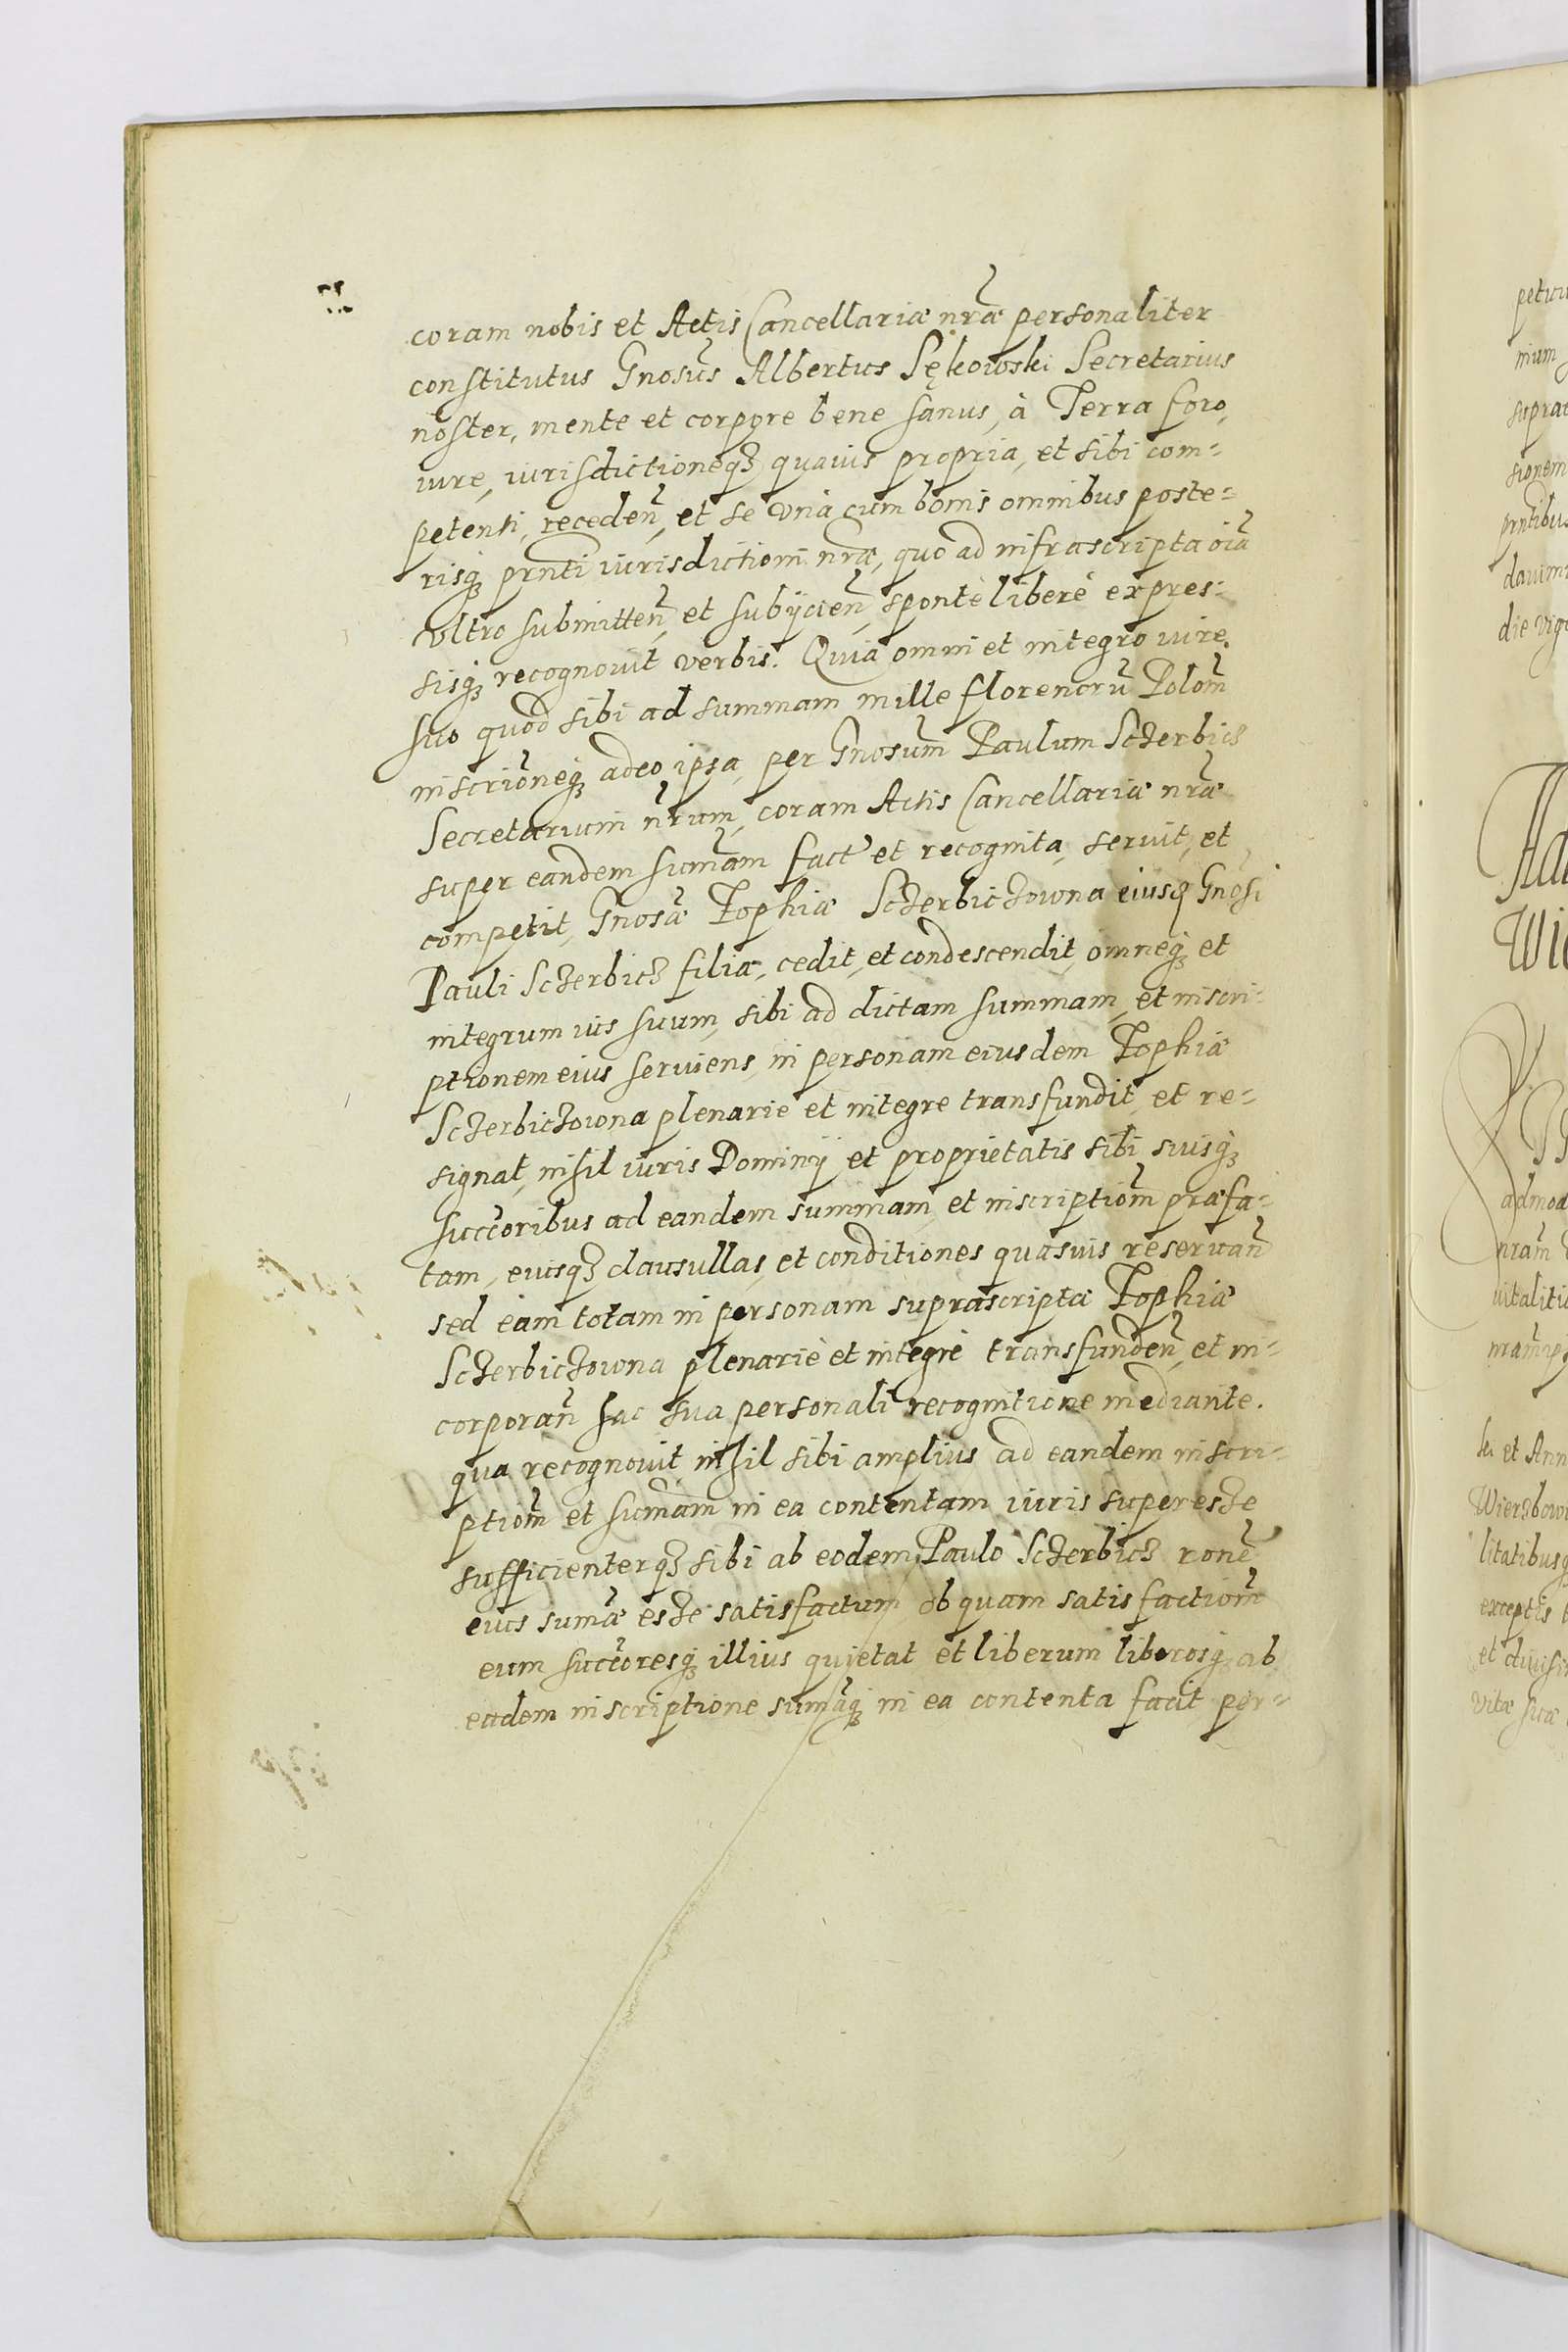 coram nobis et Actis Cancellariæ nræ personaliter
constitutus Gnosus Albertus Sękowski Secretarius
noster, mente et corpore bene sanus, à Terra foro,
iure, iurisdictioneqз quauis propria, et sibi com-
petenti, receden̄, et se vnà cum bonis omnibus poste-
risqз prn̄ti iurisdictioni nræ, quo ad infrascripta oīa
vltro submitten̄, et subijcien̄, spontè liberè expres-
sisqз recognouit verbis. Quia omni et integro iure
suo quod sibi ad summam mille florenorū Polon̄
inscrion̄eqз adeo ipsa, per Gnosum Paulum Sczerbicz
Secretarium nr̄um, coram Actis Cancellariæ nræ
super eandem sum̄am fact' et recognita, seruit, et
competit, Gnosæ Zophiæ Sczerbiczowna eiusqз Gnosi
Pauli Sczerbicz filiæ, cedit, et condescendit, omneqз et
integrum ius suum, sibi ad dictam summam, et inscri-
ptionem eius seruiens, in personam eiusdem Zophiæ
Sczerbiczowna plenarie et integre transfundit, et re-
signat, nihil iuris Dominij et proprietatis sibi suisqз
succ̄oribus ad eandem summam, et inscription̄ præfa-
tam, eiusqз clausullas, et conditiones quasuis reseruan̄
sed eam totam in personam suprascriptæ Zophiæ
Sczerbiczowna plenariè et integrè transfunden̄, et in-
corporan̄ hac sua personali recognitione mediante.
qua recognouit, nihil sibi amplius ad eandem inscri-
ption̄ et sum̄am in ea contentam iuris superesse
sufficienterqз sibi ab eodem Paulo Sczerbicz rōne
eius sum̄æ esse satisfactum ob quam satisfaction̄
eum succ̄oresqз illius quietat et liberum liberosqз ab
eadem inscriptione sum̄aqз in ea contenta facit per-